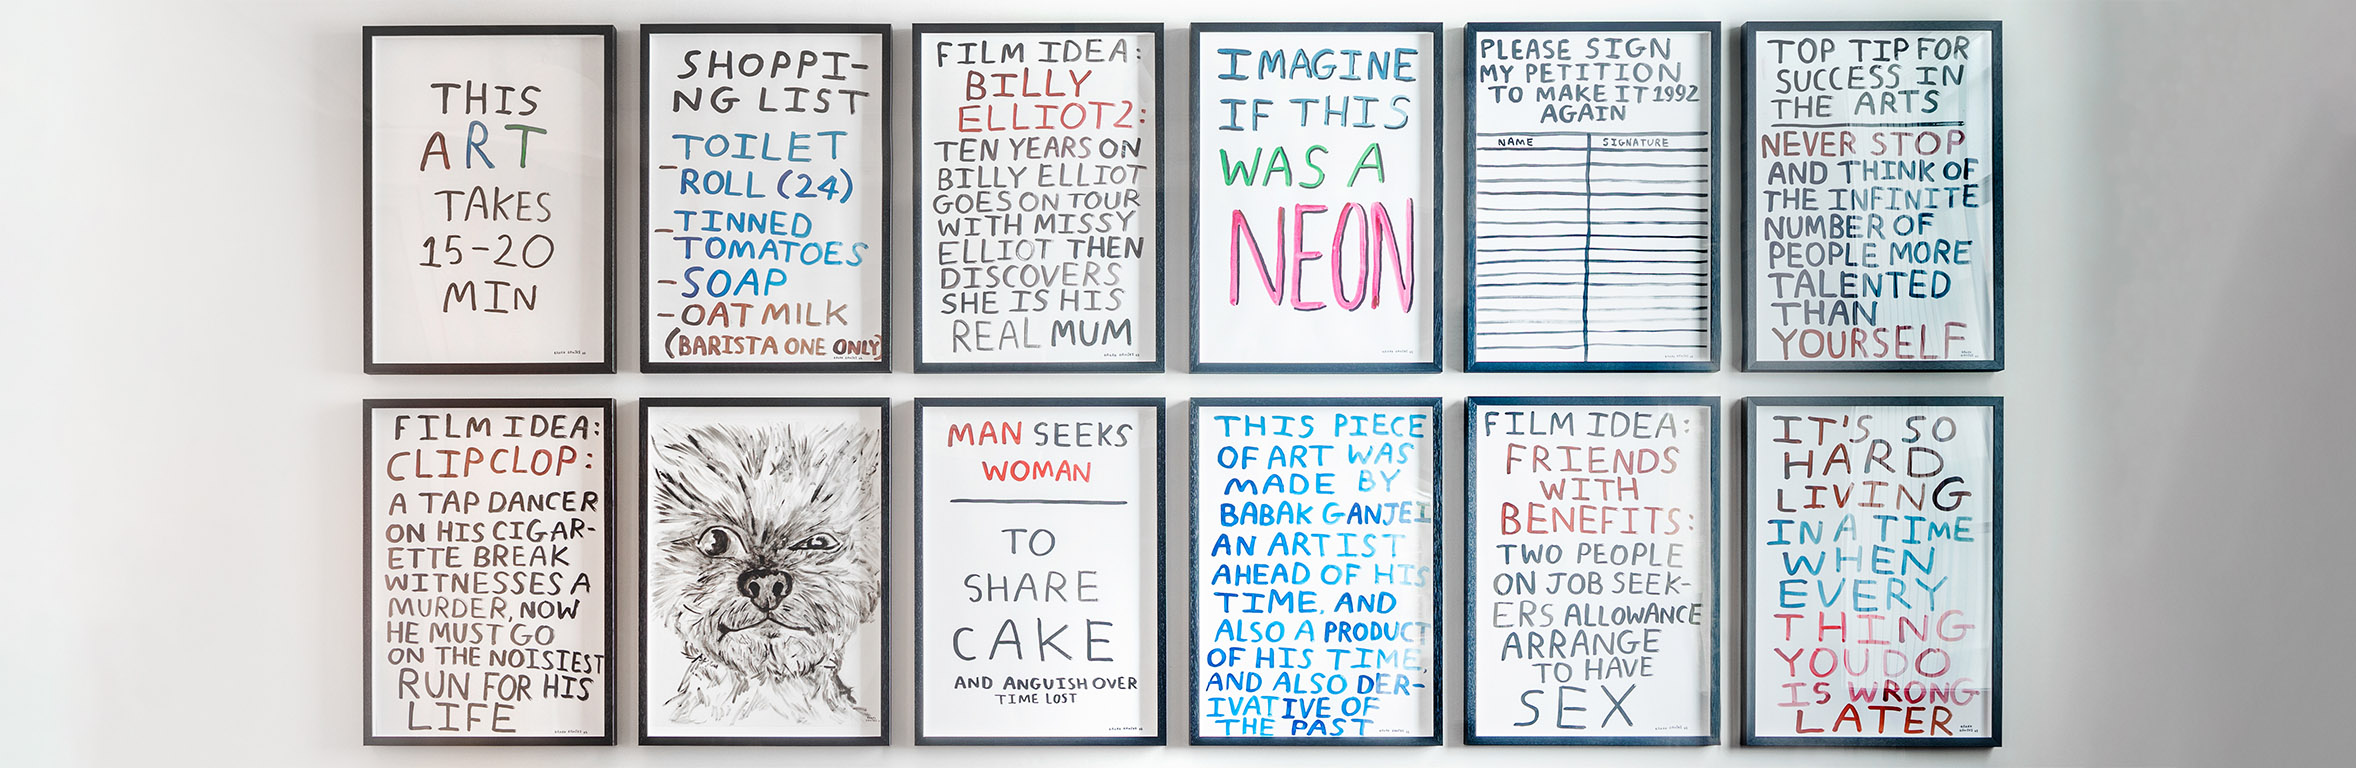 THIS
ART
TAKES
15-20
MIN
SHOPPI-
NG LIST
TOILET
-ROLL (24)
-TINNED
TOMATOES
-SOAP
-OAT MILK
(BARISTA ONE ONLY)
FILM IDEA:
BILLY
ELLIOT2:
TEN YEARS ON
BILLY ELLIOT
GOES ON TOUR
WITH MISSY
ELLIOT THEN
DISCOVERS
SHE IS HIS
REAL MUM
IMAGINE
IF THIS
WAS A
NEON
PLEASE SIGN
MY PETITION
TO MAKE IT 1992
AGAIN
NAME SIGNATURE
TOP TIP FOR
SUCCESS IN
THE ARTS
NEVER STOP
AND THINK OF
THE INFINITE
NUMBER OF
PEOPLE MORE
TALENTED
THAN
YOURSELF
FILM IDEA:
CLIPCLOP:
A TAP DANCER
ON HIS CIGAR-
ETTE BREAK
WITNESSES A
MURDER, NOW
HE MUST GO
ON THE NOISIEST
RUN FOR HIS
LIFE
MAN SEEKS
WOMAN
TO
SHARE
CAKE
AND ANGUISH OVER
TIME LOST
THIS PIECE
OF ART WAS
MADE BY
BABAK GANJEI
AN ARTIST
AHEAD OF HIS
TIME, AND
ALSO A PRODUCT
OF HIS TIME,
AND ALSO DER-
IVATIVE OF
THE PAST
FILM IDEA:
FRIENDS
WITH
BENEFITS:
TWO PEOPLE
ON JOB SEEK-
ERS ALLOWANCE
ARRANGE
TO HAVE
SEX
IT'S SO
HARD
LIVING
IN A TIME
WHEN
EVERY
THING
YOU DO
IS WRONG
LATER